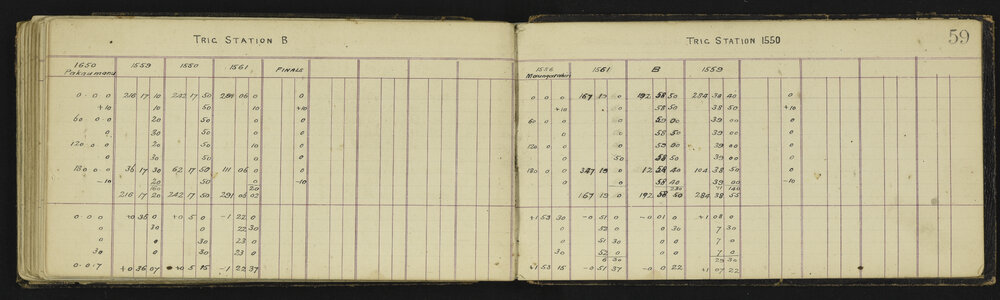 TRIG STATION B
1650 1559 1550 1561 FINALS
Pakaumanu
0 0 0 216 17 10 242 17 50 291 06 0 0
+10 10 50 10 +10
60 0 0 20 50 0 0
0 30 50 0 0
120 0 0 20 50 0 0
0 30 50 0 0
180 0 0 36 17 30 62 17 50 111 06 0 0
-10 20 50 0 -10
160 20
216 17 20 242 17 50 291 06 02
0 0 0 +0 36 0 +0 5 0 -1 22 0
0 30 0 22 30
0 0 30 23 0
30 0 30 23 0
0 0 7 +0 36 07 +0 5 15 -1 22 37
TRIG STATION 1550
59
1556 1561 B 1559
Maungatahiri
0 0 0 167 19 0 192 58 50 284 38 40 0
+10 0 58 50 38 50 +10
60 0 0 0 59 00 39 00 0
0 0 58 50 39 00 0
120 0 0 0 59 00 39 00 0
0 50 58 50 39 00 0
180 0 0 347 19 0 12 58 40 104 38 50 0
-10 0 58 40 39 00 -10
167 19 0 192 58 50 284 38 55
+1 53 30 -0 51 0 -0 01 0 +1 08 0
0 52 0 0 30 7 30
0 51 30 0 7 0
30 52 0 0 7 0
6 30 29 30
+1 53 15 -0 51 37 -0 0 22 +1 07 22